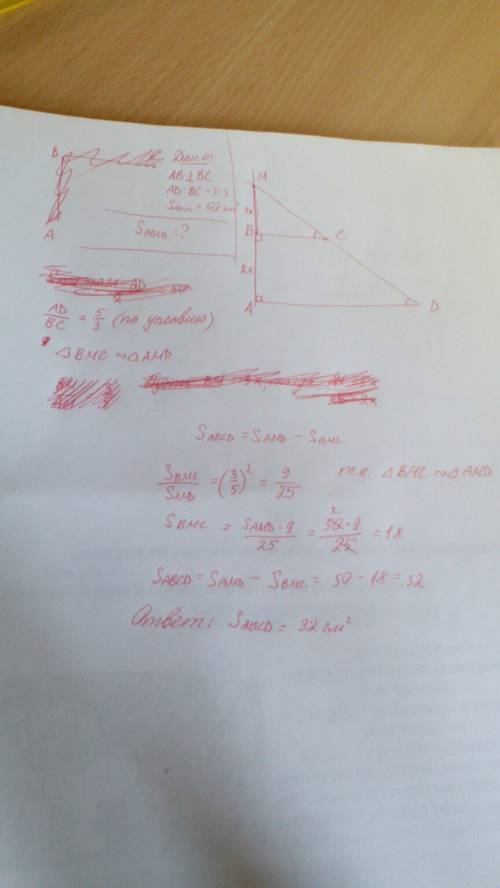 B
A
Дано:
AB⊥BC
AD:BC=5:3
S_ADM = 50 см²
S_ABCD = ?
M
3x
B
C
2x
A
D
AD/BC = 5/3 (по условию)
△BMC ∾ △AMD
S_ABCD = S_AMD − S_BMC
S_BMC/S_AMD = (3/5)² = 9/25 т.к. △BMC ∾ △AMD
S_BMC = S_AMD · 9/25 = 50 · 9/25 = 18
S_ABCD = S_AMD − S_BMC = 50 − 18 = 32
Ответ: S_ABCD = 32 см²